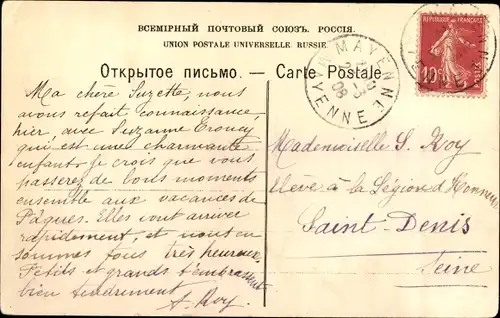 ВСЕМІРНЫЙ ПОЧТОВЫЙ СОЮЗЪ. РОССІЯ.
UNION POSTALE UNIVERSELLE. RUSSIE.
Открытое письмо. — Carte Postale
MAYENNE
MAYENNE
08
REPUBLIQUE FRANÇAISE
10c
Ma chère Suzette, nous
avons refait connaissance,
hier, avec Suzanne
qui est une charmante
enfant. Je crois que vous
passerez de bons moments
ensemble aux vacances de
Pâques. Elles vont arriver
rapidement, et nous en
sommes tous très heureux.
Petits et grands t'embrassent
bien tendrement. A. Roy.
Mademoiselle S. Roy
élève à la Légion d'Honneur
Saint-Denis
Seine